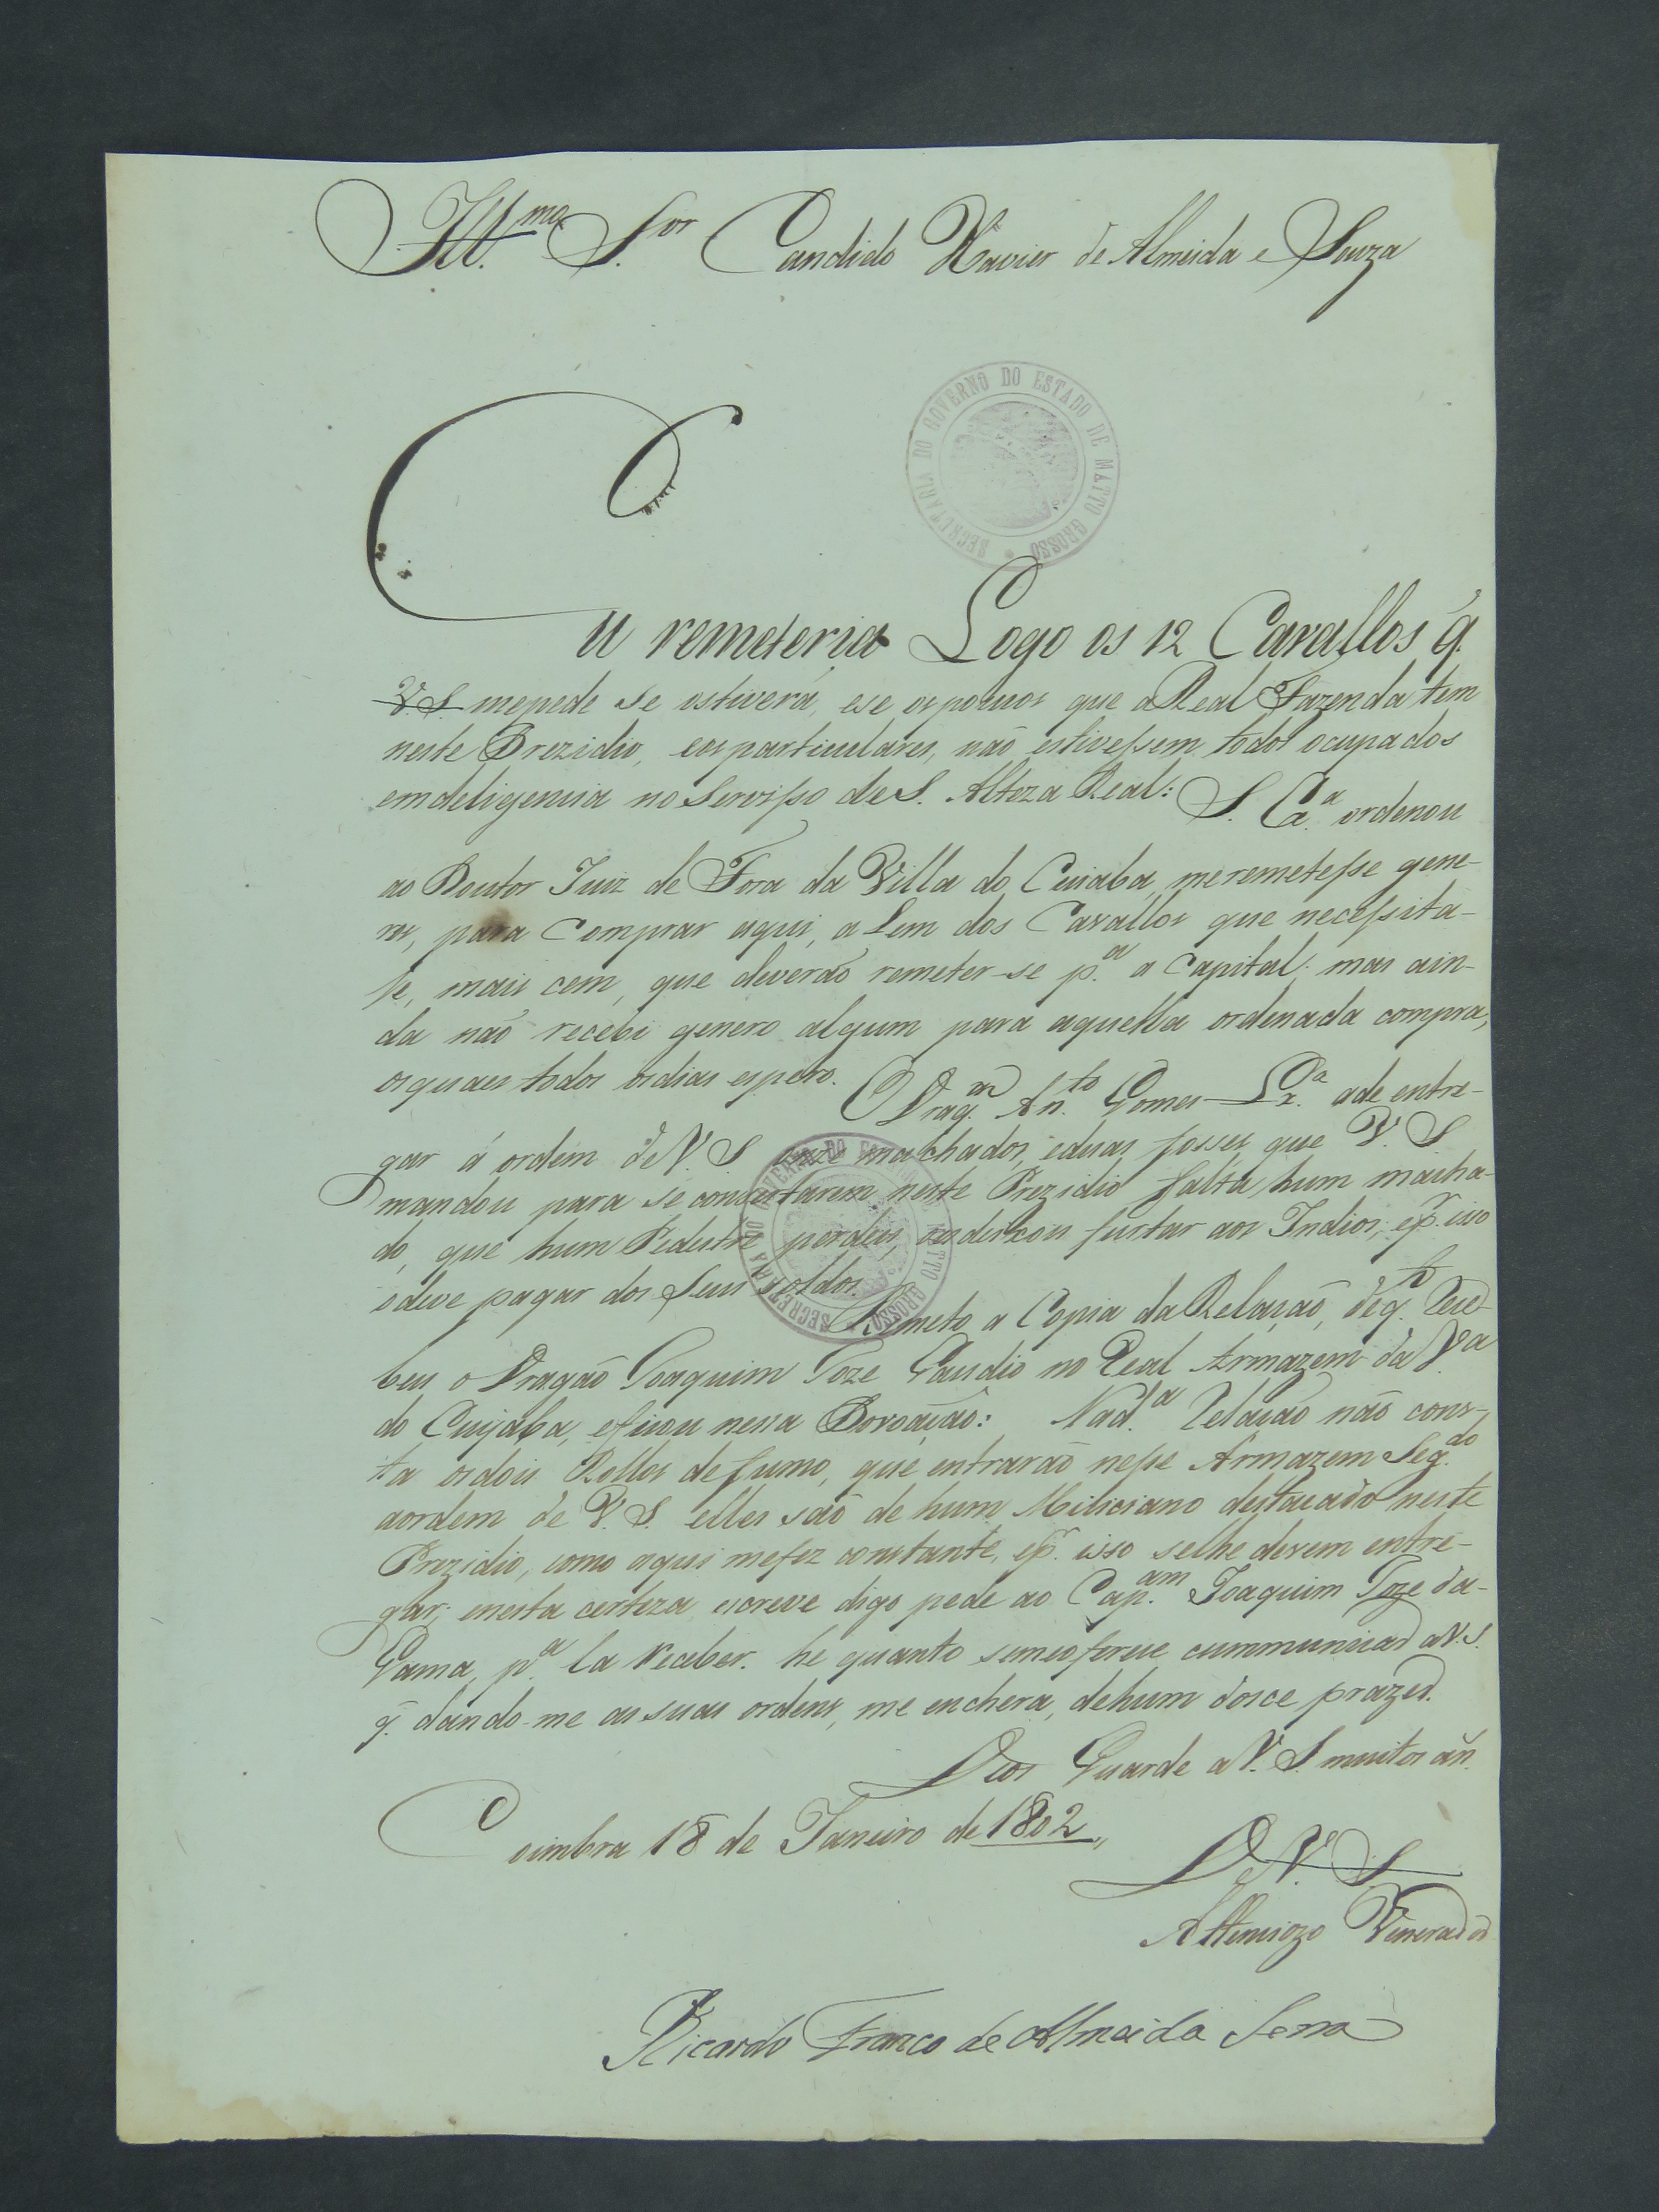 Ill.mo S.or Candido Xavier de Almeida e Souza
SECRETARIA DO GOVERNO DO ESTADO DE MATTO GROSSO *
Eu remeteria Logo os 12 Cavallos q̃.
V.S. mepede se ostiverá, ese ospoucos que aReal Fazenda tem
neste Prezidio, eosparticulares, não estivessem todos ocupados
emdeligencia no Servisso deS. Alteza Real: S. Ex.a ordenou
ao Doutor Juiz de Fora da Villa do Cuiaba, meremetesse gene-
ros, para Comprar aqui, a Lem dos Cavallos que necessita-
se, mais cem, que deverão remeter-se p.a a Capital; mas ain-
da não recebi genero algum para aquella ordenada compra,
osquaes todos osdias espero. O Drag.am An.to Gomes ade entre-
gar á ordem deV.S. onze machados, eduas fosses que V.S.
mandou para se concertarem neste Prezidio falta hum macha-
do, que hum Pedestre perdeu, oudeixou furtar aos Indios, ep.r isso
odeve pagar dos seus soldos.
SECRETARIA DO GOVERNO DO ESTADO DE MATTO GROSSO *
Remeto a Copia da Relação, deq. Rece-
beu o Dragão Joaquim Joze Gaudio no Real Armazem da V.a
do Cuyaba, eficou nessa Povoação: Nad.a Relação não cons-
ta osdois Rollos defumo, que entrarão nesse Armazem Seg.do
aordem de V.S. elles são de hum Miliciano destacado neste
Prezidio, como aqui mefez constante, ep.r isso selhe devem entre-
gar; enesta certeza escreve digo pede ao Cap.am Joaquim Joze da-
Gama, p.a la receber. he quanto semeoferece cummunicar aV.S.
q̃. dando-me assuas ordens, me encherá, dehum dosce prazer.
Deos Guarde aV.S. muitos an̄.
Coimbra 18 de Janeiro de 1802,,
DeV.S.
Attenciozo Venerador
Ricardo Franco de Almeida Serra